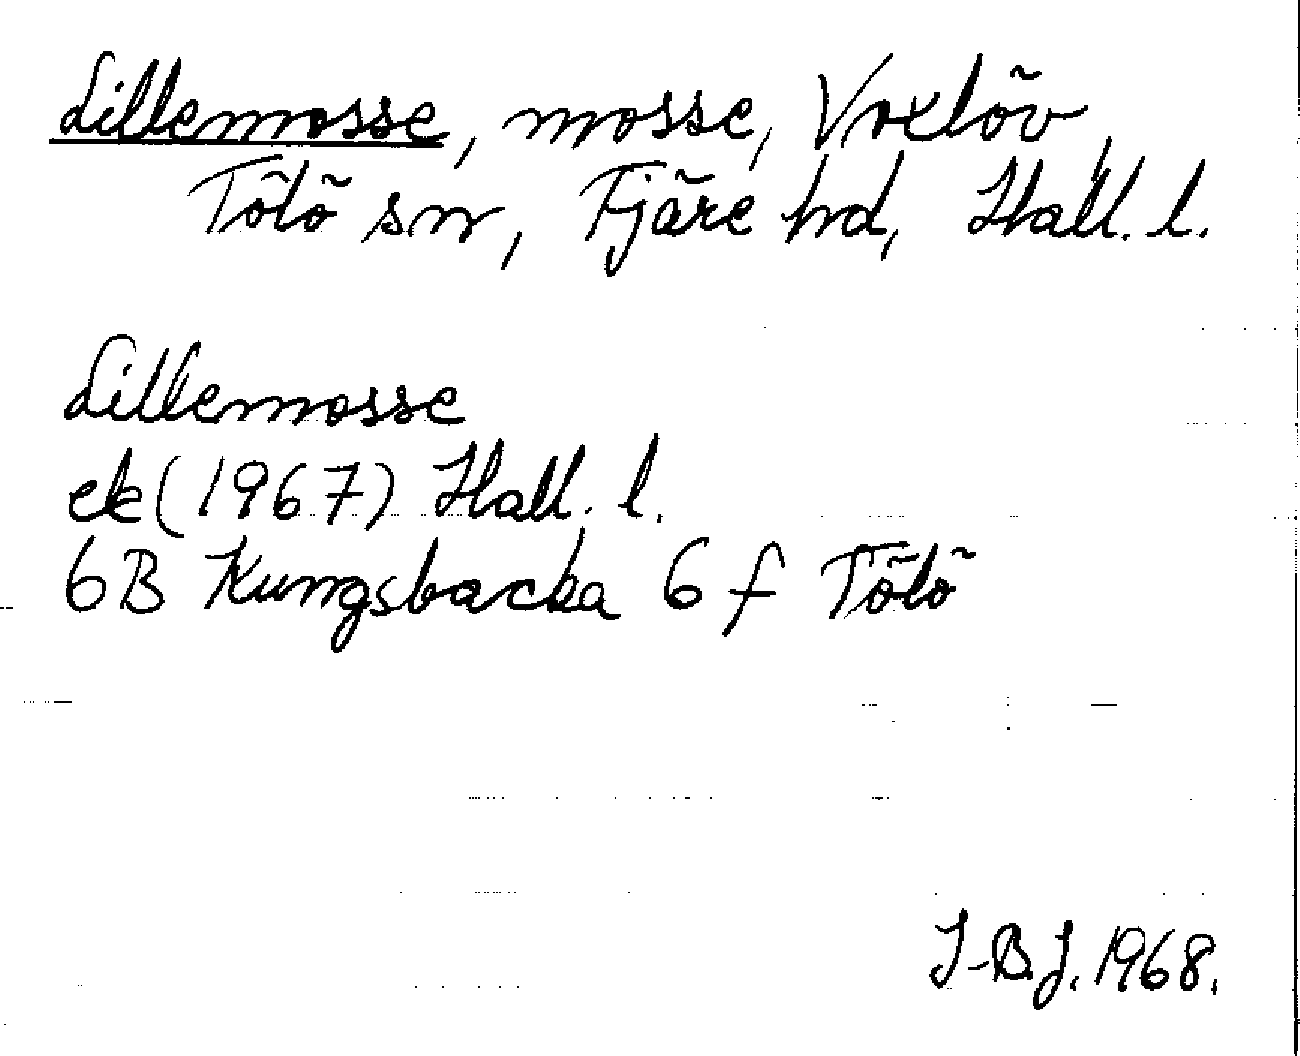 Lillemosse, mosse, Voxlöv,
Tölö sn, Fjäre hd, Hall. l.
Lillemosse
ek (1967) Hall. l.
6B Kungsbacka 6 f Tölö
I-B.J. 1968.